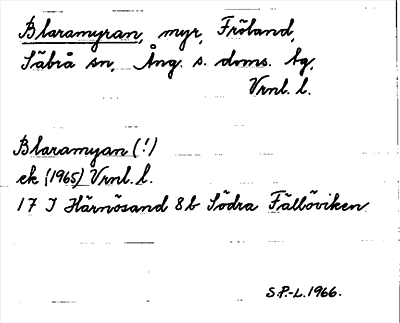 Blaramyran, myr, Fröland,
Säbrå sn, Ång. s. doms. tg,
Vrnl. l.
Blaramyan (!)
ek (1965) Vrnl. l.
17 I Härnösand 8b Södra Fällöviken
S.P.-L. 1966.